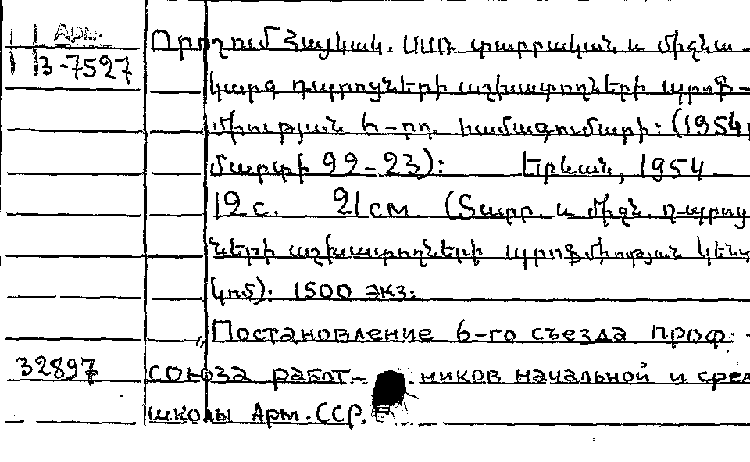 Арм.
3-7527
Որոշում Հայկակ. ՍՍՌ տարրական և միջնա-
կարգ դպրոցների աշխատողների պրոֆ-
միության 6-րդ համագումարի: (1954,
մարտի 22-23): Երևան, 1954
12 с. 21 см. (Տարր. և միջն. դպրոց
ների աշխատողների պրոֆմիության կենտ
կոմ): 1500 экз.
Постановление 6-го съезда проф-
32897
союза работ- ников начальной и сред
школы Арм. ССР.